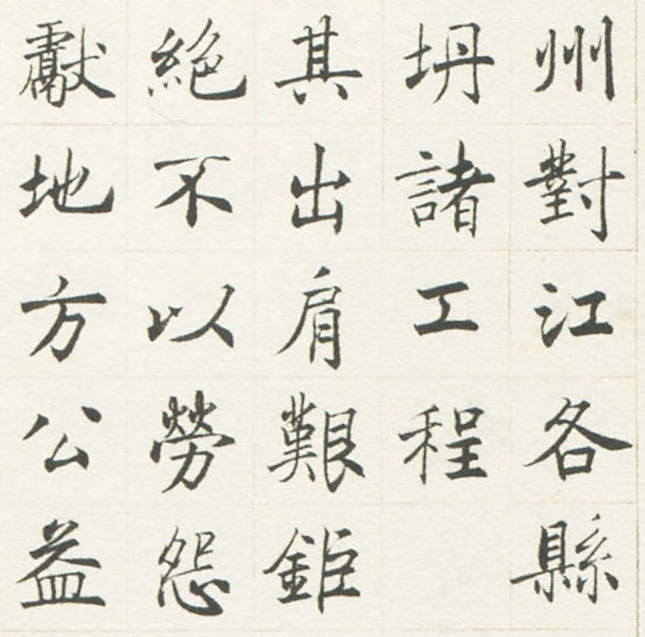 州對江各縣
坍諸工程
其出肩艱鉅
絶不以勞怨
獻地方公益